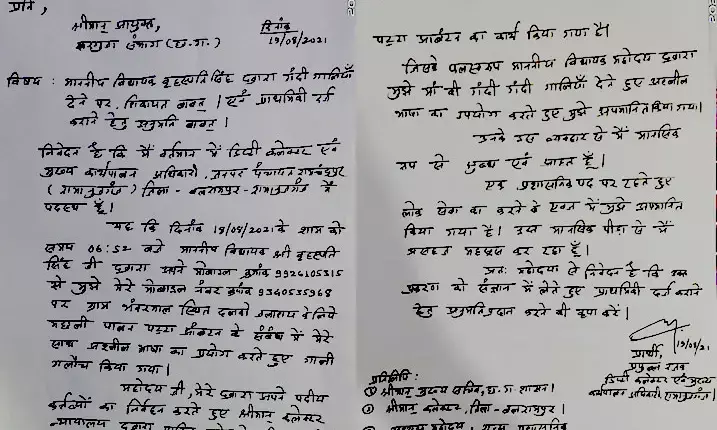 प्रति,
श्रीमान् आयुक्त,
सरगुजा संभाग (छ.ग.)
दिनांक
19/08/2021
विषय : माननीय विधायक बृहस्पति सिंह द्वारा गंदी गालियाँ
देने पर शिकायत बाबत् । एवं प्राथमिकी दर्ज
कराने हेतु अनुमति बाबत् ।
निवेदन है कि मैं वर्तमान में डिप्टी कलेक्टर एवं
मुख्य कार्यपालन अधिकारी, जनपद पंचायत रामचंद्रपुर
(रामानुजगंज) जिला - बलरामपुर - रामानुजगंज में
पदस्थ हूँ।
यह कि दिनांक 18/08/2021 के शाम को
समय 06:52 बजे माननीय विधायक श्री बृहस्पति
सिंह जी द्वारा अपने मोबाइल क्रमांक 9926105315
से मुझे मेरे मोबाइल नंबर क्रमांक 9340535968
पर ग्राम भंवरमाल स्थित जलाशय के लिये
मछली पालन पट्टा आबंटन के संबंध में मेरे
साथ अश्लील भाषा का प्रयोग करते हुए गाली
गलौच किया गया।
महोदय जी, मेरे द्वारा अपने पदीय
कर्तव्यों का निर्वहन करते हुए श्रीमान् कलेक्टर
न्यायालय द्वारा
पट्टा आबंटन का कार्य किया गया है।
जिसके फलस्वरूप माननीय विधायक महोदय द्वारा
मुझे माँ की गंदी गंदी गालियाँ देते हुए अश्लील
भाषा का उपयोग करते हुए मुझे अपमानित किया गया।
उनके इस व्यवहार से मैं मानसिक
रूप से क्षुब्ध एवं आहत हूँ।
एक प्रशासनिक पद पर रहते हुए
लोक सेवा का करने के एवज में मुझे अपमानित
किया गया है। इस मानसिक पीड़ा से मैं
असहज महसूस कर रहा हूँ।
अतः महोदय से निवेदन है कि उक्त
प्रकरण को संज्ञान में लेते हुए प्राथमिकी दर्ज कराने
हेतु अनुमति प्रदान करने की कृपा करें।
19/08/21
प्रार्थी,
डिप्टी कलेक्टर एवं मुख्य
कार्यपालन अधिकारी, रामानुजगंज
प्रतिलिपि :
① श्रीमान् मुख्य सचिव, छ.ग. शासन।
② श्रीमान् कलेक्टर, जिला - बलरामपुर।